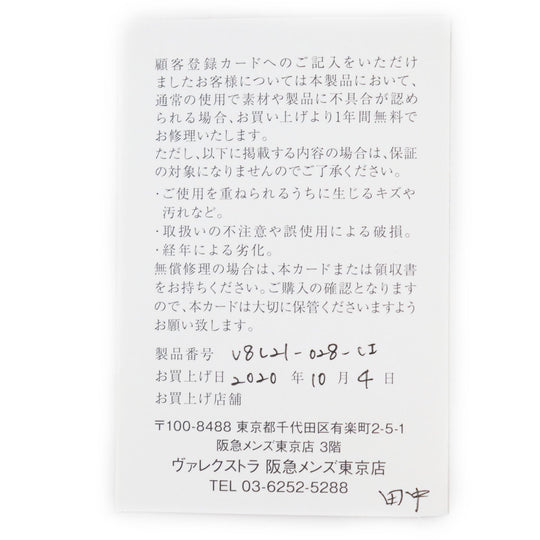 顧客登録カードへのご記入をいただけ
ましたお客様については本製品において、
通常の使用で素材や製品に不具合が認め
られる場合、お買い上げより1年間無料で
お修理いたします。
ただし、以下に掲載する内容の場合は、保証
の対象になりませんのでご了承ください。
・ご使用を重ねられるうちに生じるキズや
汚れなど。
・取扱いの不注意や誤使用による破損。
・経年による劣化。
無償修理の場合は、本カードまたは領収書
をお持ちください。ご購入の確認となります
ので、本カードは大切に保管くださいますよう
お願い致します。
製品番号 V8L21-028-CI
お買上げ日 2020 年 10 月 4 日
お買上げ店舗
〒100-8488 東京都千代田区有楽町2-5-1
阪急メンズ東京店 3階
ヴァレクストラ 阪急メンズ東京店
TEL 03-6252-5288
田中